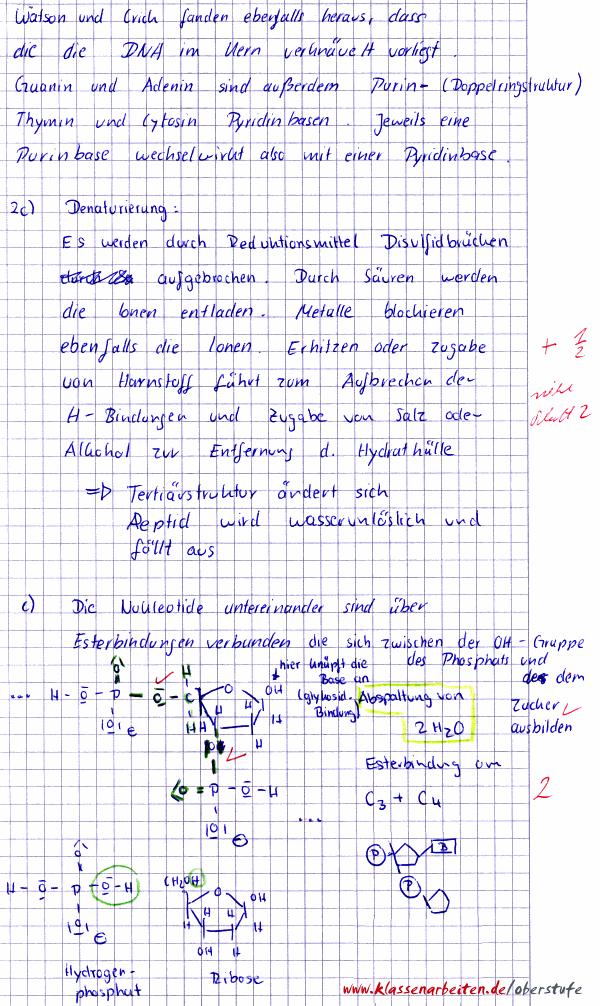 Watson und Crich fanden ebenfalls heraus, dass
die die DNA im Kern verknäuelt vorliegt.
Guanin und Adenin sind außerdem Purin- (Doppelringstruktur)
Thymin und Cytosin Pyridinbasen. Jeweils eine
Purinbase wechselwirkt also mit einer Pyridinbase.
2c) Denaturierung:
Es werden durch Reduktionsmittel Disulfidbrücken
aufgebrochen. Durch Säuren werden
die Ionen entladen. Metalle blockieren
ebenfalls die Ionen. Erhitzen oder Zugabe
+ 1/2
von Harnstoff führt zum Aufbrechen der
siehe
H-Bindungen und Zugabe von Salz oder
Blatt 2
Alkohol zur Entfernung d. Hydrathülle
=> Tertiärstruktur ändert sich
Peptid wird wasserunlöslich und
fällt aus
c) Die Nukleotide untereinander sind über
Esterbindungen verbunden die sich zwischen der OH-Gruppe
des Phosphats und
dem
Zucker
ausbilden
hier knüpft die
Base an
(glykosid.
Bindung)
Abspaltung von
2 H2O
... H-O-P-O-C
O
OH
H
H
H H
H
|O| ⊖
O=P-O-H
|O| ⊖
...
Esterbindung am
C3 + C4
2
P
B
P
H-O-P-O-H
|O| ⊖
Hydrogen-
phosphat
CH2OH
O
OH
H
H
H
H
OH
H
Ribose
www.klassenarbeiten.de/oberstufe